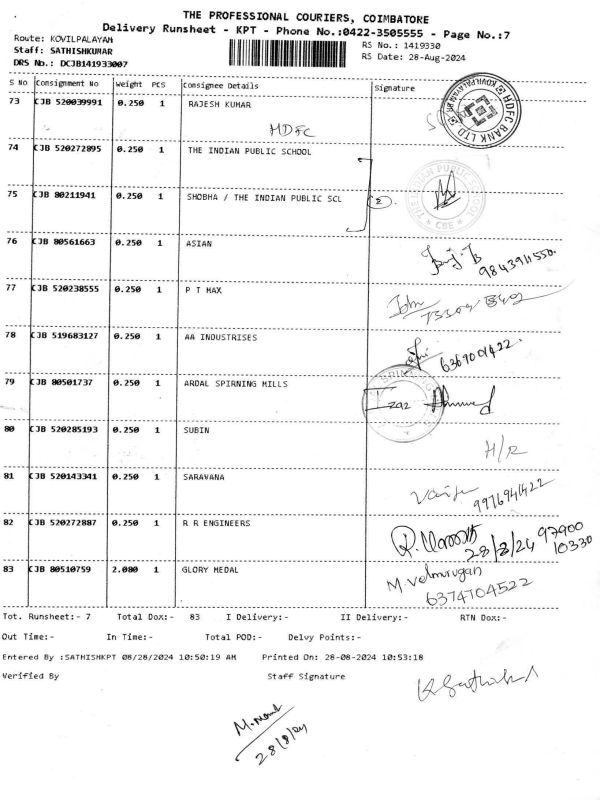 THE PROFESSIONAL COURIERS, COIMBATORE
Delivery Runsheet - KPT - Phone No.:0422-3505555 - Page No.:7
Route: KOVILPALAYAM
RS No.: 1419330
Staff: SATHISHKUMAR
RS Date: 28-Aug-2024
DRS No.: DCJB141933007
S No Consignment No Weight PCS Consignee Details Signature
73 CJB 520039991 0.250 1 RAJESH KUMAR
HDFC
HDFC BANK LTD
74 CJB 520272895 0.250 1 THE INDIAN PUBLIC SCHOOL
75 CJB 80211941 0.250 1 SHOBHA / THE INDIAN PUBLIC SCL
2
THE INDIAN PUBLIC SCHOOL
CBE
76 CJB 80561663 0.250 1 ASIAN
9843911550.
77 CJB 520238555 0.250 1 P T MAX
78 CJB 519683127 0.250 1 AA INDUSTRISES
6369001422.
79 CJB 80501737 0.250 1 ARDAL SPIRNING MILLS
80 CJB 520285193 0.250 1 SUBIN
H/R
81 CJB 520143341 0.250 1 SARAVANA
9976941422
82 CJB 520272887 0.250 1 R R ENGINEERS
28/8/24 97900
10330
83 CJB 80510759 2.080 1 GLORY MEDAL
M. Velmurugan
6374704522
Tot. Runsheet:- 7 Total Dox:- 83 I Delivery:- II Delivery:- RTN Dox:-
Out Time:- In Time:- Total POD:- Delvy Points:-
Entered By :SATHISHKPT 08/28/2024 10:50:19 AM Printed On: 28-08-2024 10:53:18
Verified By Staff Signature
28/8/24